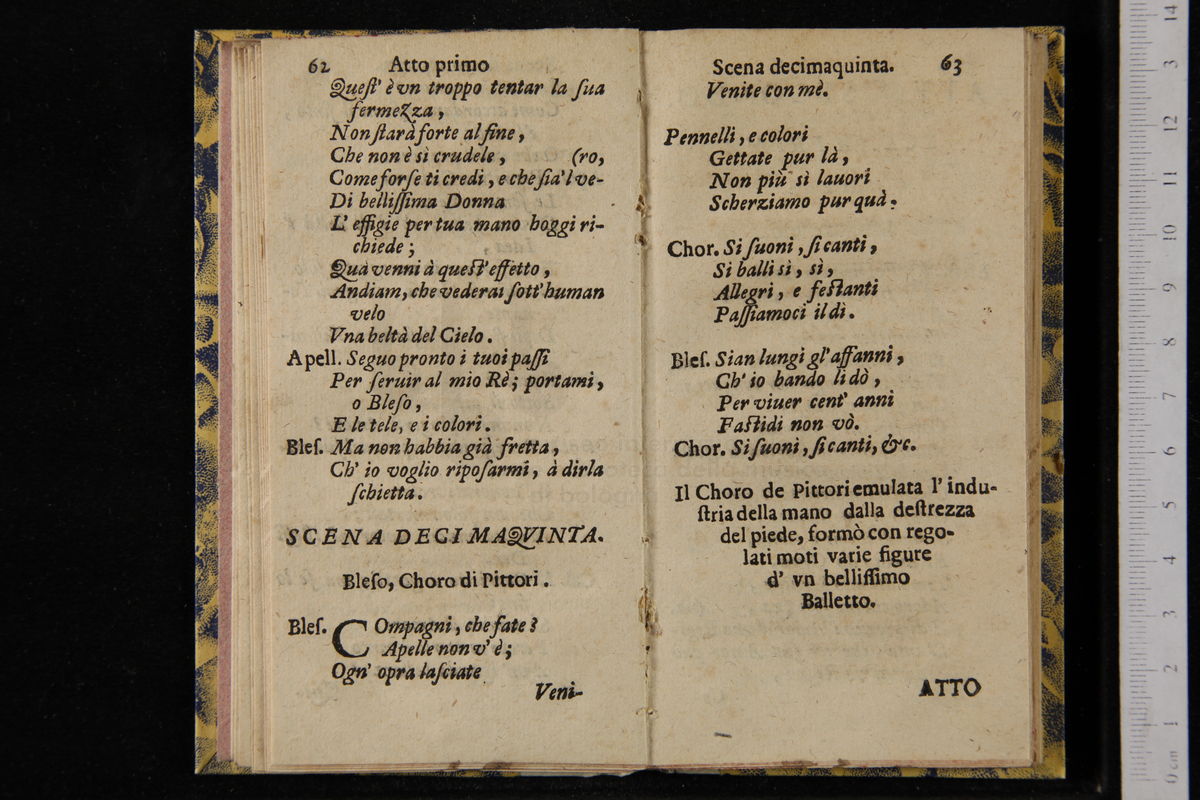 62 Atto primo
Quest' è vn troppo tentar la sua
fermezza,
Non starà forte al fine,
Che non è sì crudele, (ro,
Come forse ti credi, e che sia'l ve-
Di bellissima Donna
L' effigie per tua mano hoggi ri-
chiede;
Quà venni à quest' effetto,
Andiam, che vederai sott' human
velo
Vna beltà del Cielo.
Apell. Seguo pronto i tuoi passi
Per seruir al mio Rè; portami,
o Bleso,
E le tele, e i colori.
Bles. Ma non habbia già fretta,
Ch' io voglio riposarmi, à dirla
schietta.
SCENA DECIMAQVINTA.
Bleso, Choro di Pittori.
Bles. COmpagni, che fate?
Apelle non v' è;
Ogn' opra lasciate
Veni-
Scena decimaquinta. 63
Venite con mè.
Pennelli, e colori
Gettate pur là,
Non più sì lauori
Scherziamo pur quà.
Chor. Si suoni, si canti,
Si balli sì, sì,
Allegri, e festanti
Passiamoci il dì.
Bles. Sian lungi gl' affanni,
Ch' io bando li dò,
Per viuer cent' anni
Fastidi non vò.
Chor. Si suoni, si canti, &c.
Il Choro de Pittori emulata l' indu-
stria della mano dalla destrezza
del piede, formò con rego-
lati moti varie figure
d' vn bellissimo
Balletto.
ATTO
14
3
12
11
10
9
8
7
6
5
4
3
2
1
0 cm